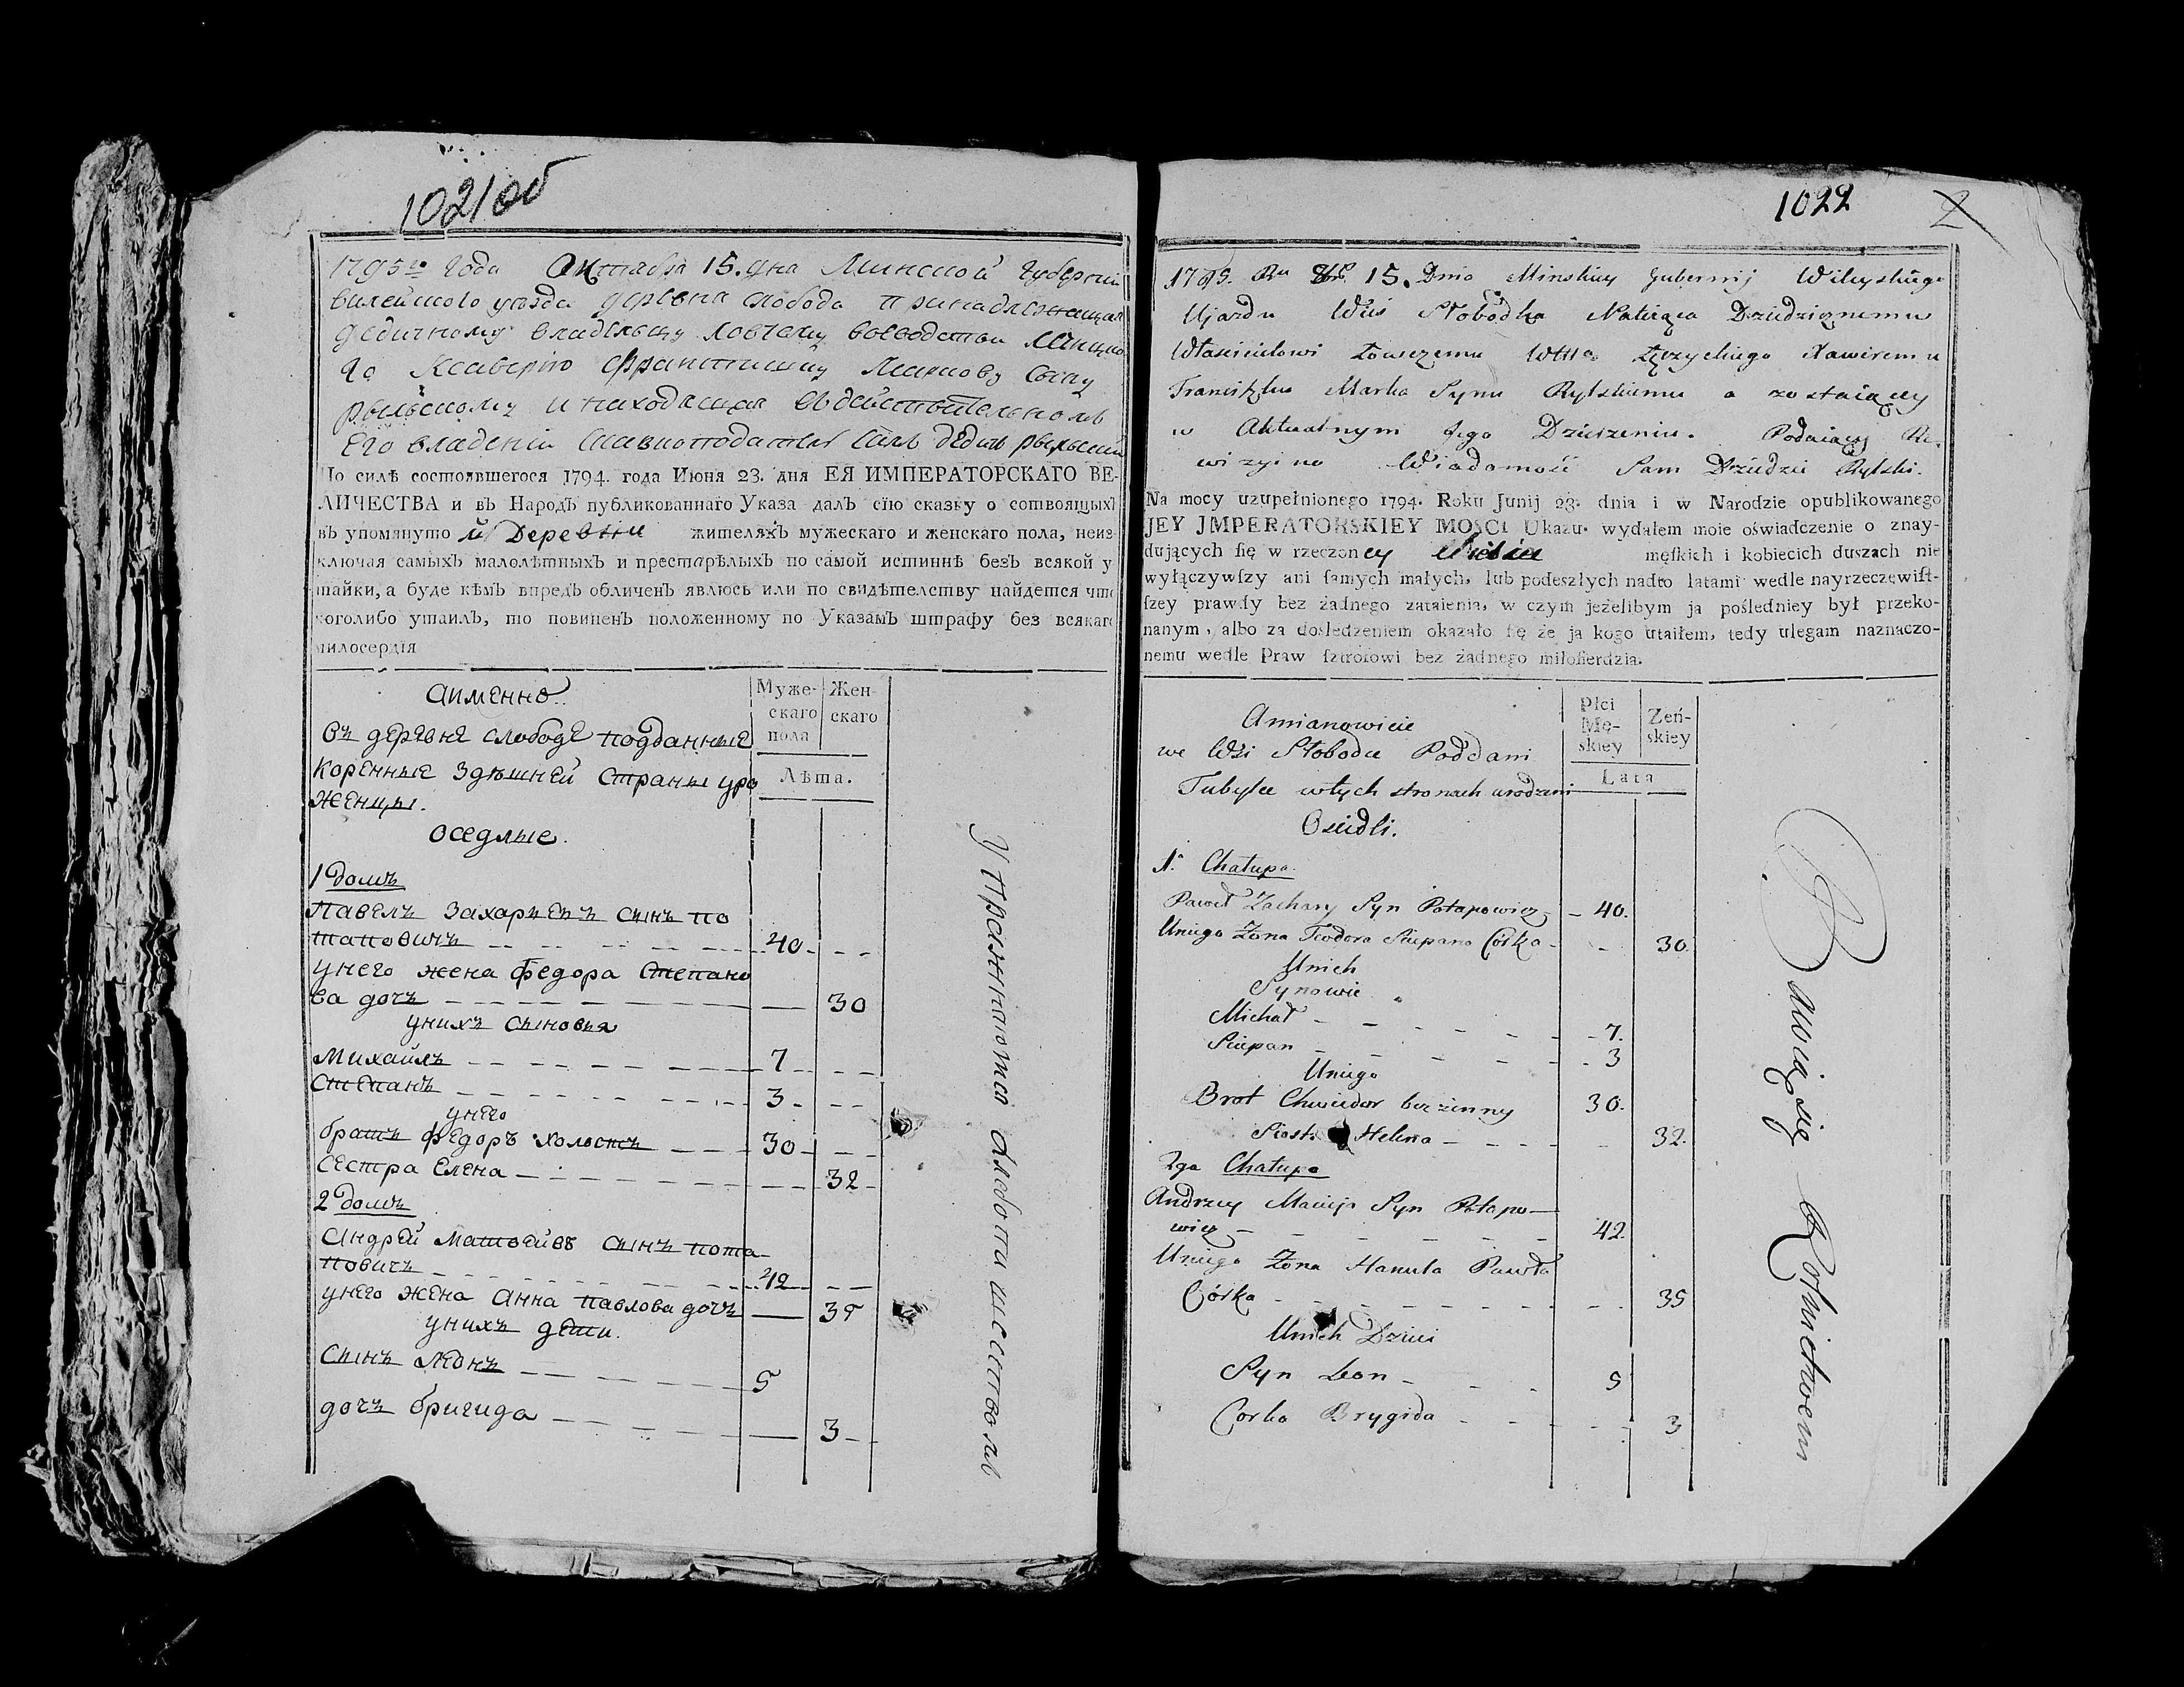 1021об
1795го года Октября 15. дня Минской губернии
вилейского уезда деревня слобода принадлежащая
дедичному владельцу ловчему воеводства
го Ксаверию Францишку Маркову сыну
рыльскому и находящая въ действительномъ
Его владении сам дедич рыльский
По силѣ состоявшегося 1794. года Июня 23. дня ЕЯ ИМПЕРАТОРСКАГО ВЕ-
ЛИЧЕСТВА и въ Народъ публикованнаго Указа далъ сїю сказку о сотвоящыхъ
въ упомянуто й Деревни жителяхъ мужескаго и женскаго пола, неиз-
ключая самыхъ малолѣтныхъ и престарѣлыхъ по самой истиннѣ безъ всякой у
тайки, а буде кѣмъ впредь обличенъ явлюсь или по свидѣтелству найдется что
коголибо утаилъ, то повиненъ положенному по Указамъ штрафу без всякаго
милосердїя
аименно
Муже-
скаго
пола
Жен-
скаго
Лѣта.
въ деревне слободе подданные
коренные здешней страны уро
женцы.
оседлые.
1 домъ
Павелъ Захариевъ сынъ по
таповичъ 40
унего жена федора степано
ва дочъ 30
унихъ сыновья
Михайлъ 7
Степанъ 3
унего
братъ федоръ холостъ 30
сестра Елена 32
2 домъ
Андрей Матвейевъ сынъ пота
повичъ 42
унего жена Анна павлова дочъ 35
унихъ дети.
сынъ леонъ 5
дочъ бригида 3
Упражняются хлебопашеством
1022
2
1795. Ru 8br 15. Dnia Minskiey Gubernij Wileyskiego
Ujazdu Wieś Słobodka Należąca Dziedzicznemu
Właścicielowi Łowczemu Wttwa Łęczyckiego Xawiremu
Franciszku Marka Synu Rylskiemu a zostaiącey
w Aktualnym Jego Dzierżeniu. Podaiący Re-
wizyina Wiadomość Sam Dziedzic Rylski.
Na mocy uzupełnionego 1794. Roku Junij 23. dnia i w Narodzie opublikowanego
JEY JMPERATORSKIEY MOSCI Ukazu. wydałem moie oświadczenie o znay-
dujących się w rzeczoney Wsi męskich i kobiecich duszach nie
wyłączywszy ani samych małych, lub podeszłych nadto latami wedle nayrzeczewist-
szey prawdy bez żadnego zataienia, w czym jeżelibym ja pośledniey był przeko-
nanym, albo za dośledzeniem okazało się że ja kogo utaiłem, tedy ulegam naznaczo-
nemu wedle Praw sztrofowi bez żadnego miłosierdzia.
Amianowicie
Płci
Mę-
skiey
Zeń-
skiey
Lata
we Wsi Słobodce Poddani
Tubylce wtych stronach urodzeni
Osiedli.
1a Chałupa.
Paweł Zachary Syn Potapowicz 40.
Uniego Zona Teodora Stiepana Corka 30.
Unich
Synowie
Michał 7.
Stiepan 3
Uniego
Brat Chwiedor bezżenny 30.
Siostra Helena 32.
2ga Chałupa
Andrzey Macieja Syn Potapo
wicz 42.
Uniego Zona Hanula Pawła
Córka 35
Unich Dzieci
Syn Leon 5
Corka Brygida 3
Bawią się Rolnictwem